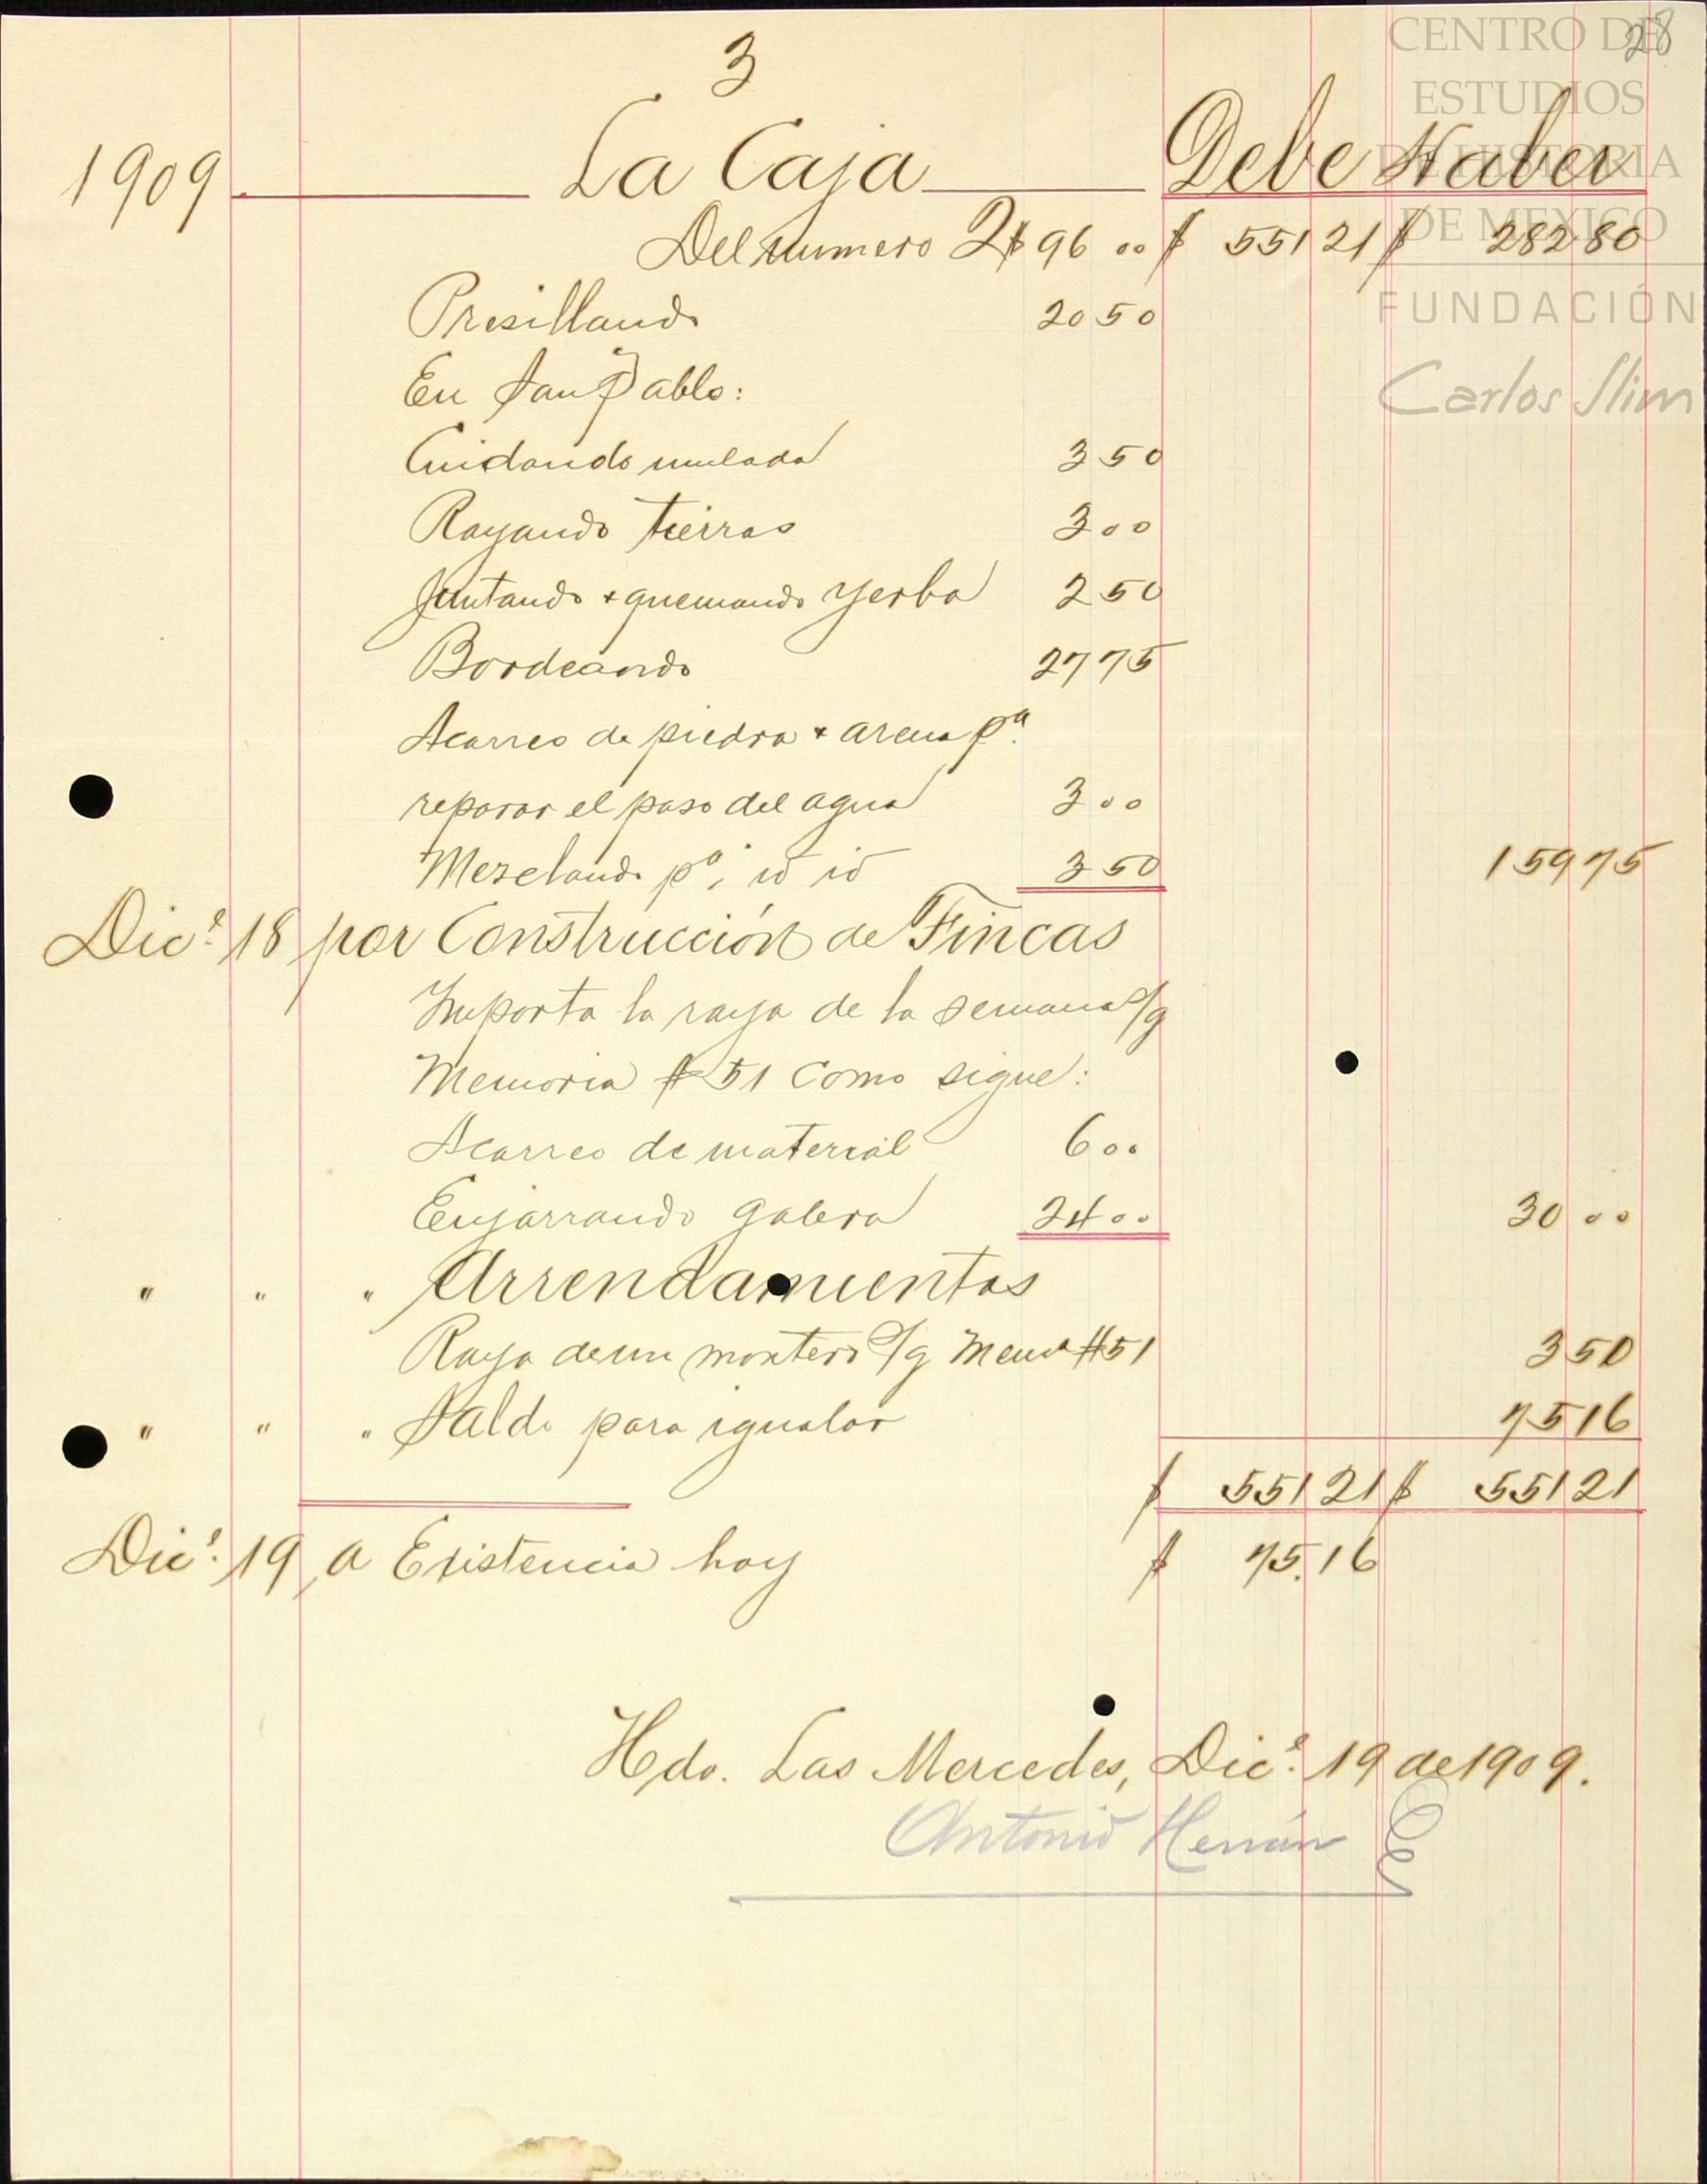 28
3
1909 La Caja Debe Haber
Del numero 2 $ 96 00 $ 551 21 $ 282 80
Presillando 20 50
En San Pablo:
Cuidando mulada 3 50
Rayando tierras 3 00
Juntando + quemando yerba 2 50
Bordeando 27 75
Acarreo de piedra + arena pª.
reparar el paso del agua 3 00
Mezclando pª; id id 3 50 159 75
Dice. 18 por Construcción de Fincas
Importa la raya de la semana s/g
Memoria # 51 como sigue:
Acarreo de material 6 00
Enjarrando galera 24 00 30 00
" " " Arrendamientos
Raya de un montero s/g Memª #51 3 50
" " " Saldo para igualar 75 16
$ 551 21 $ 551 21
Dice. 19, a Existencia hoy $ 75.16
Hda. Las Mercedes, Dice. 19 de 1909.
Antonio Hernán
CENTRO DE
ESTUDIOS
DE HISTORIA
DE MEXICO
FUNDACIÓN
Carlos Slim